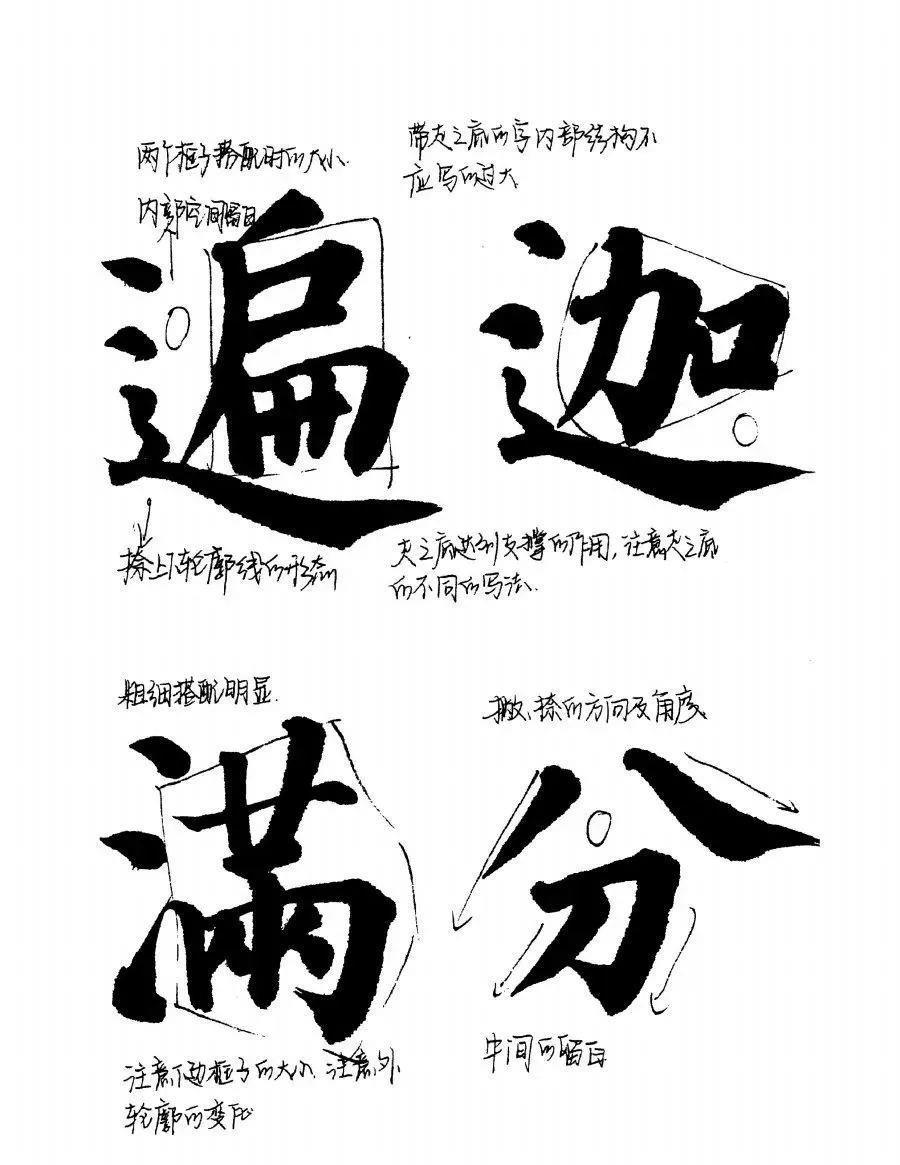 两个框子搭配时的大小.
内部空间留白
遍
捺上下轮廓线的形态
带走之底的字内部结构不
应写的过大
迦
走之底达到支撑的作用,注意走之底
的不同的写法.
粗细搭配明显.
满
注意下边框子的大小.注意外
轮廓的变化
撇、捺的方向及角度
分
中间的留白